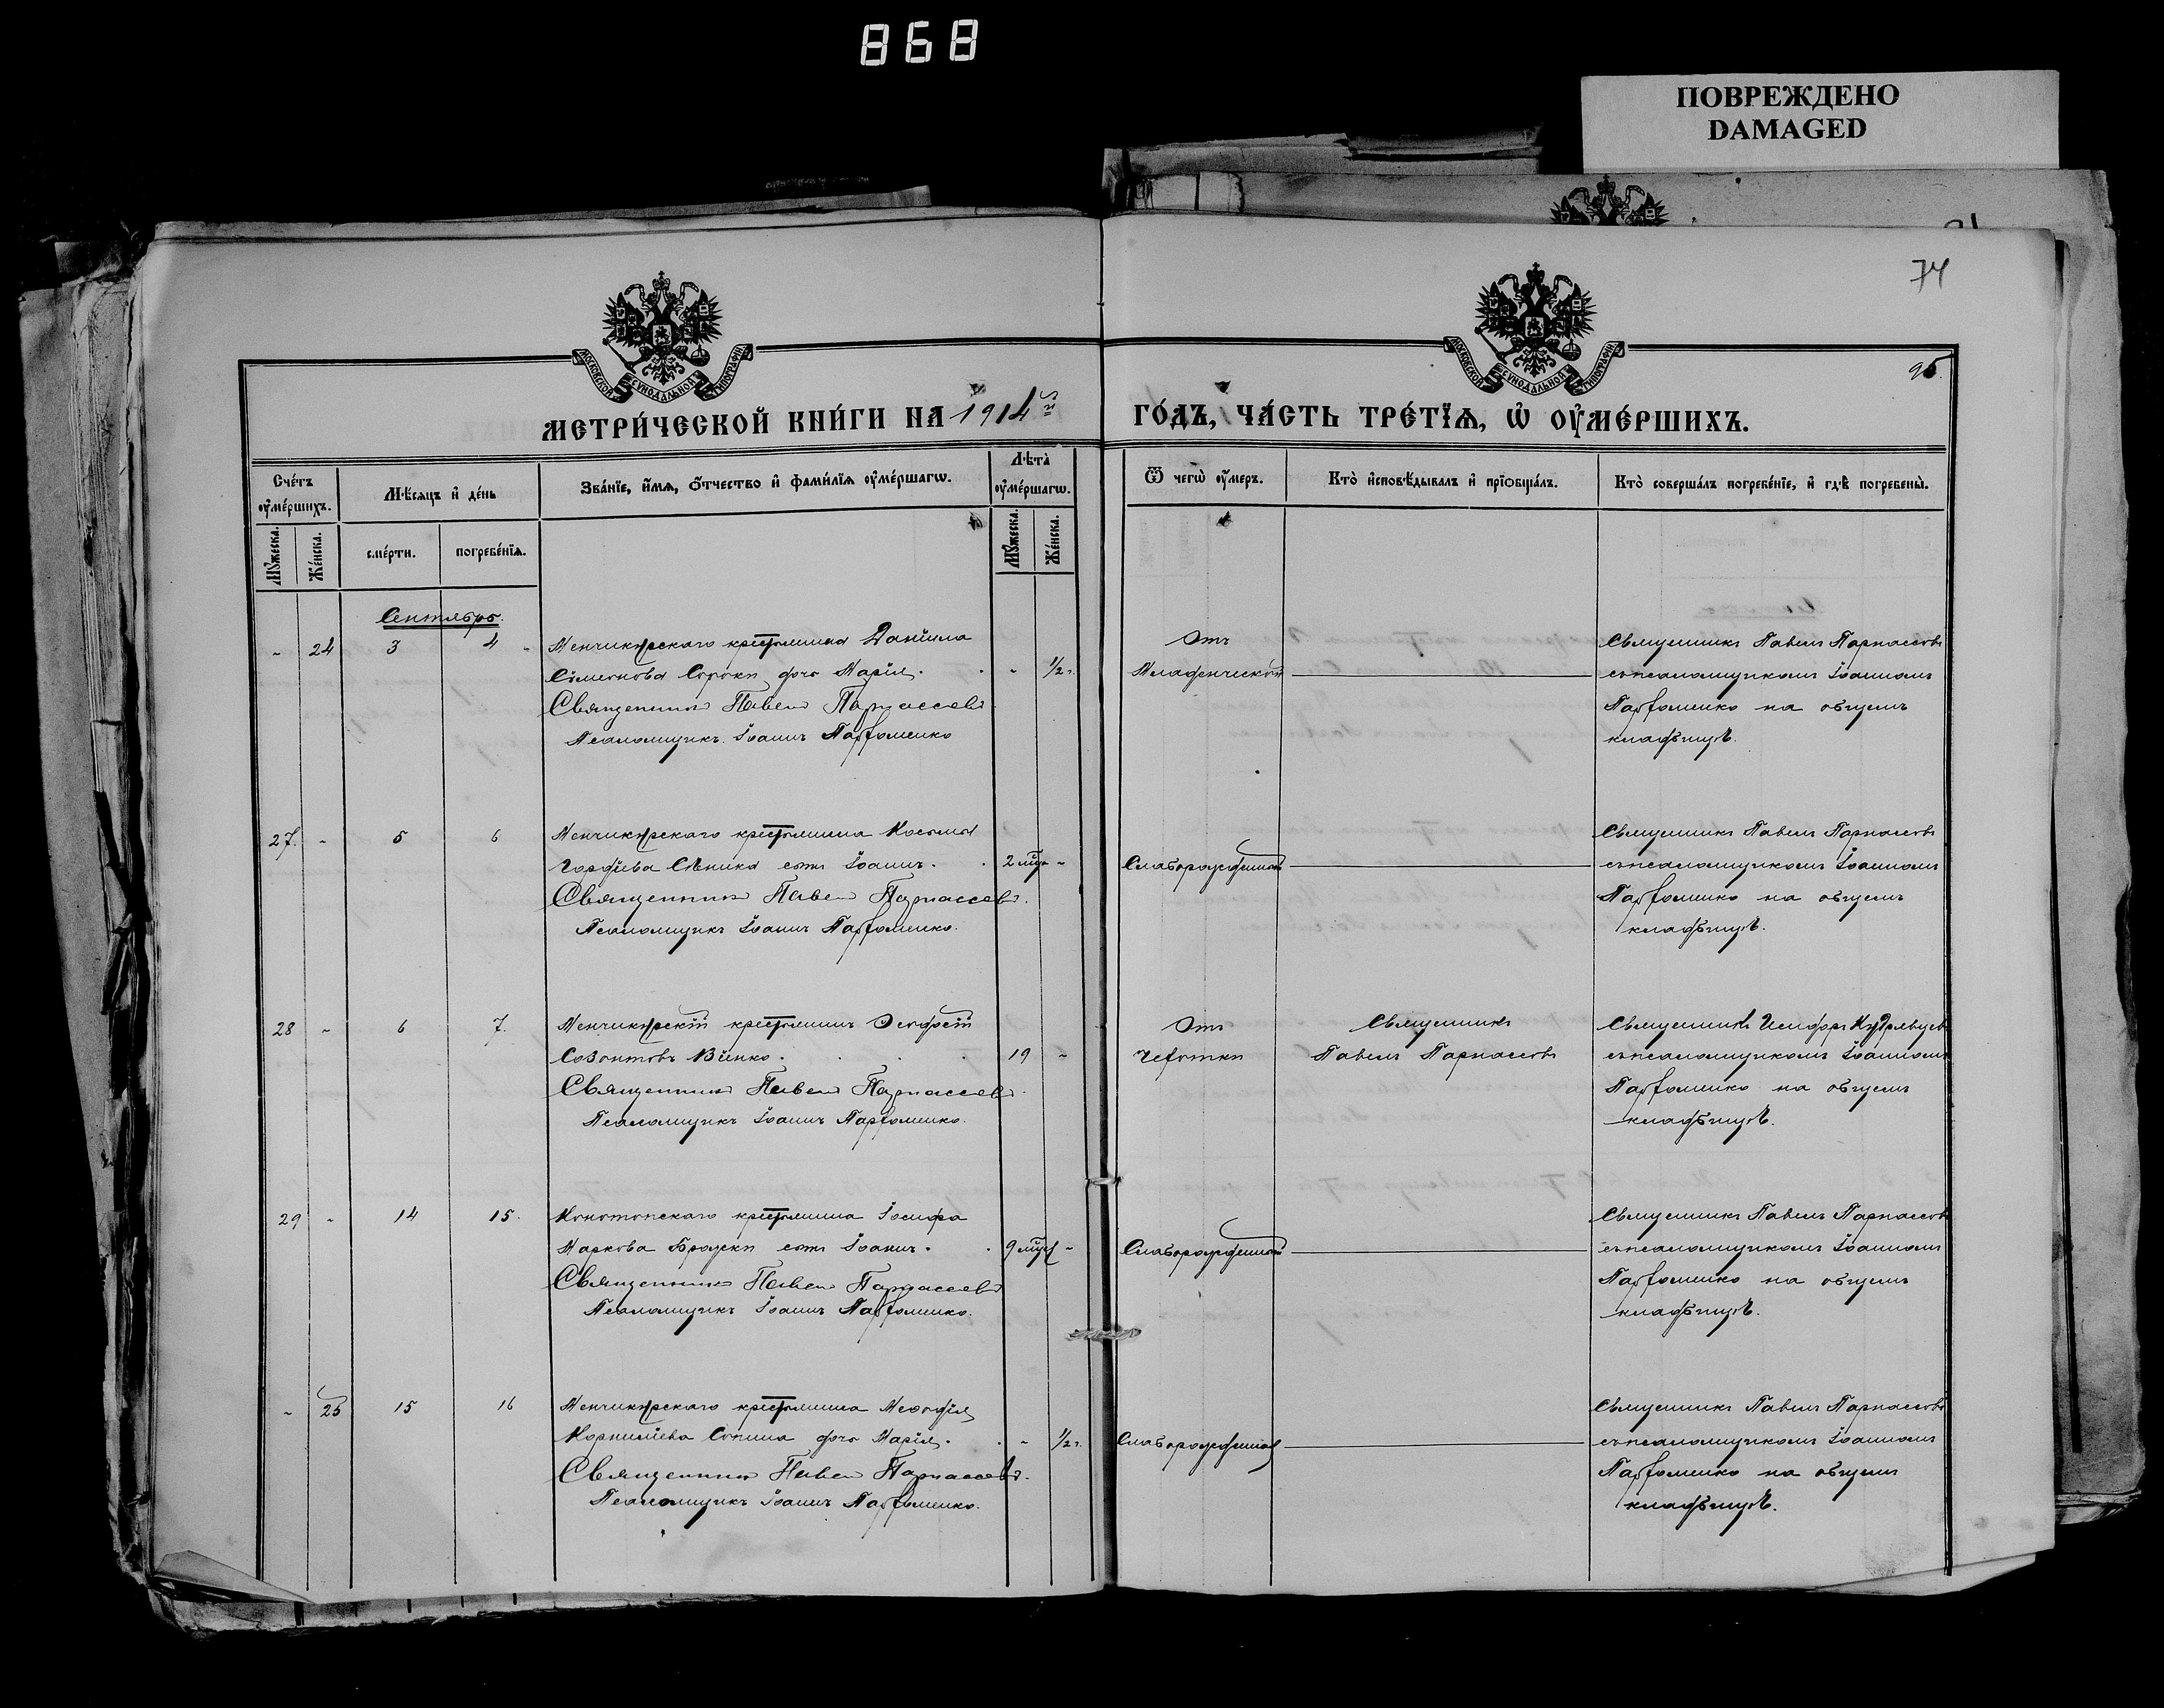 868
ПОВРЕЖДЕНО
DAMAGED
74
95.
МОСКОВСКОЙ СѴНОДАЛЬНОЙ ТИПОГРАФІИ
МОСКОВСКОЙ СѴНОДАЛЬНОЙ ТИПОГРАФІИ
МЕТРИ́ЧЕСКОЙ КНИ́ГИ НА 1914 й ГО́ДЪ, ЧА́СТЬ ТРЕ́ТЇѦ, Ѡ҆ ОУ҆МЕ́РШИХЪ.
Сче́тъ оу҆ме́ршихъ.
Мꙋ́жеска.
Же́нска.
Мѣ́сѧцъ и҆ де́нь
сме́рти.
погребе́нїѧ.
Зва́нїе, и҆́мѧ, ѻ҆́тчество и҆ фами́лїѧ оу҆ме́ршагѡ.
Лѣ́та оу҆ме́ршагѡ.
Мꙋ́жеска.
Же́нска.
Ѿ чегѡ̀ оу҆́меръ.
Кто̀ и҆сповѣ́дывалъ и҆ прїѻбща́лъ.
Кто̀ соверша́лъ погребе́нїе, и҆ гдѣ̀ погребены̀.
Сентябрь.
- 24 3 4 Менчикурскаго крестьянина Даніила
Симеонова Сороки дочь Марія. - 1/2 г.
Священникъ Павелъ Парнассовъ
Псаломщикъ Іоаннъ Парфоменко
Отъ
Младенческой
Священникъ Павелъ Парнассовъ
съ псаломщикомъ Іоанномъ
Парфоменко на общемъ
кладбищѣ.
27. - 5 6 Менчикурскаго крестьянина Косьмы
Гордіева Сѣника сынъ Іоаннъ. 2 мѣс. -
Священникъ Павелъ Парнассовъ.
Псаломщикъ Іоаннъ Парфоменко.
Слаборожденный
Священникъ Павелъ Парнассовъ
съ псаломщикомъ Іоанномъ
Парфоменко на общемъ
кладбищѣ.
28 - 6 7. Менчикурскій крестьянинъ
Созонтовъ 19 -
Священникъ Павелъ Парнассовъ.
Псаломщикъ Іоаннъ Парфоменко.
Отъ
Чахотки
Священникъ
Павелъ Парнассовъ
Священникъ Кудрявцевъ
съ псаломщикомъ Іоанномъ
Парфоменко на общемъ
кладбищѣ.
29 - 14 15. Конотопскаго крестьянина Іосифа
Маркова сынъ Іоаннъ. 9 мѣс. -
Священникъ Павелъ Парнассовъ
Псаломщикъ Іоаннъ Парфоменко.
Слаборожденный
Священникъ Павелъ Парнассовъ
съ псаломщикомъ Іоанномъ
Парфоменко на общемъ
кладбищѣ.
- 25 15 16 Менчикурскаго крестьянина Меѳодія
Корниліева дочь Марія. - 1/2 г.
Священникъ Павелъ Парнассовъ.
Псаломщикъ Іоаннъ Парфоменко.
Слаборожденная
Священникъ Павелъ Парнассовъ
съ псаломщикомъ Іоанномъ
Парфоменко на общемъ
кладбищѣ.